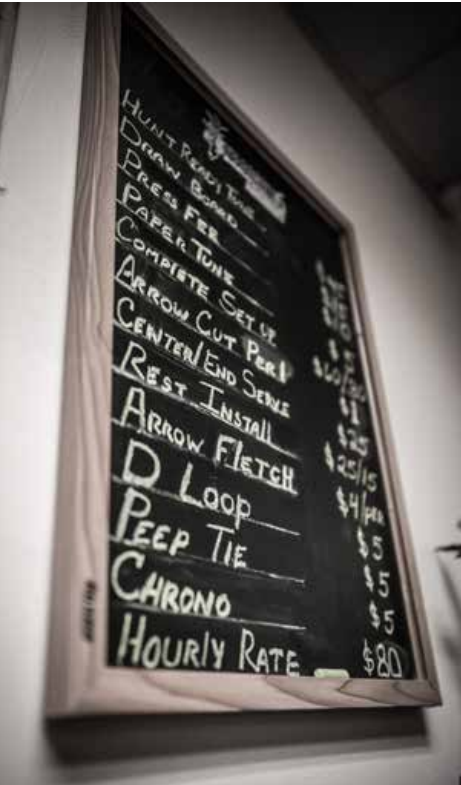 HUNT READY TUNE
DRAW BOARD
PRESS FEE
PAPER TUNE
COMPLETE SET UP
ARROW CUT PER 1 $1
CENTER/END SERVE $25
REST INSTALL $25/15
ARROW FLETCH $4/PER
D LOOP $5
PEEP TIE $5
CHRONO $5
HOURLY RATE $80